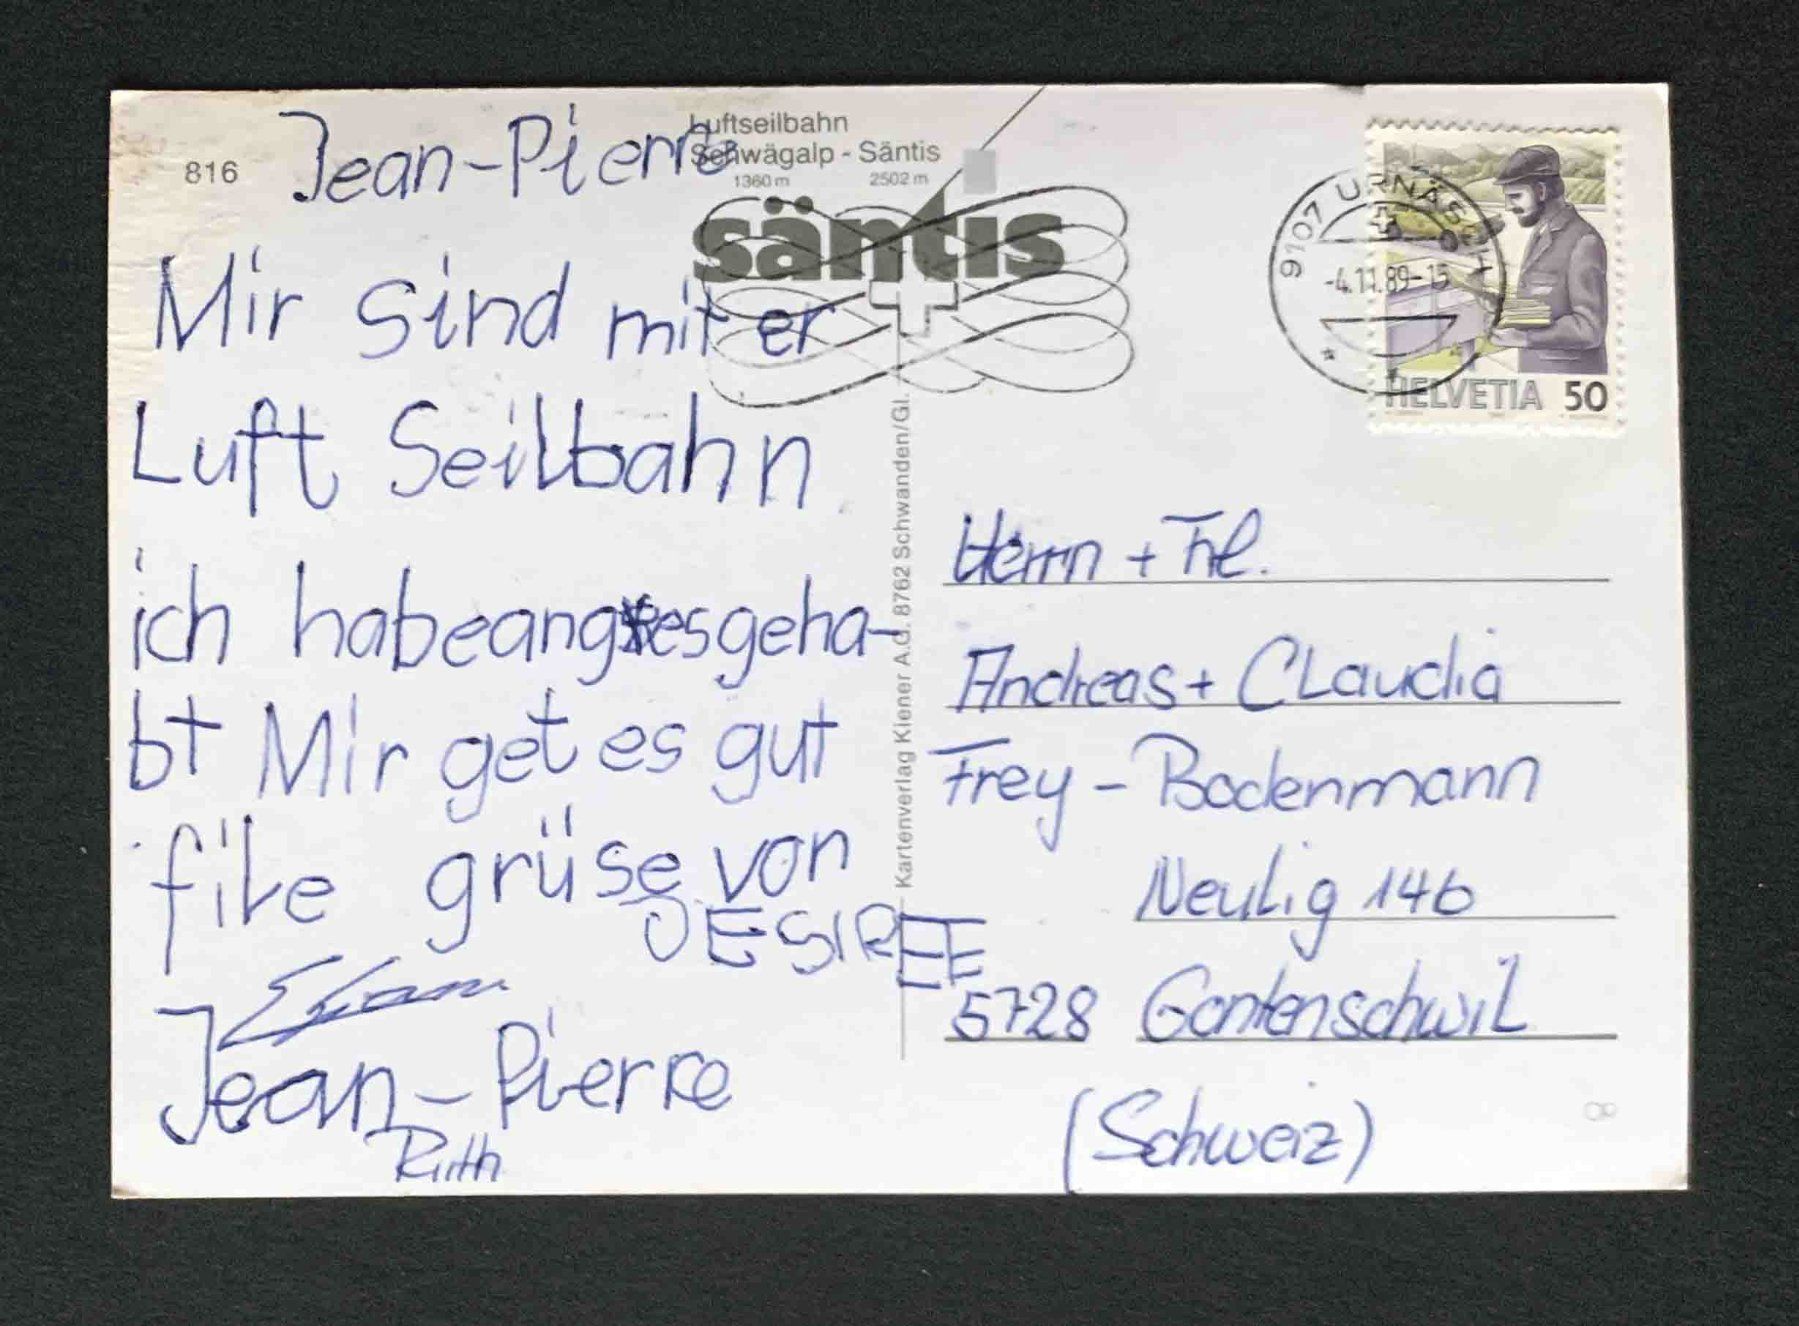 816
Jean-Pierre
Luftseilbahn
Schwägalp - Säntis
1360 m 2502 m
säntis
Mir sind mit er
Luft Seilbahn
ich habeangstesgeha-
bt Mir get es gut
file grüse von
DESIREE
Jean-Pierre
Ruth
Kartenverlag Kiener A.G. 8762 Schwanden/Gl.
9107 URNÄSCH
-4.11.89-15
HELVETIA 50
Herrn + Frl.
Andreas + CLaudia
Frey - Bodenmann
Neulig 146
5728 Gontenschwil
(Schweiz)